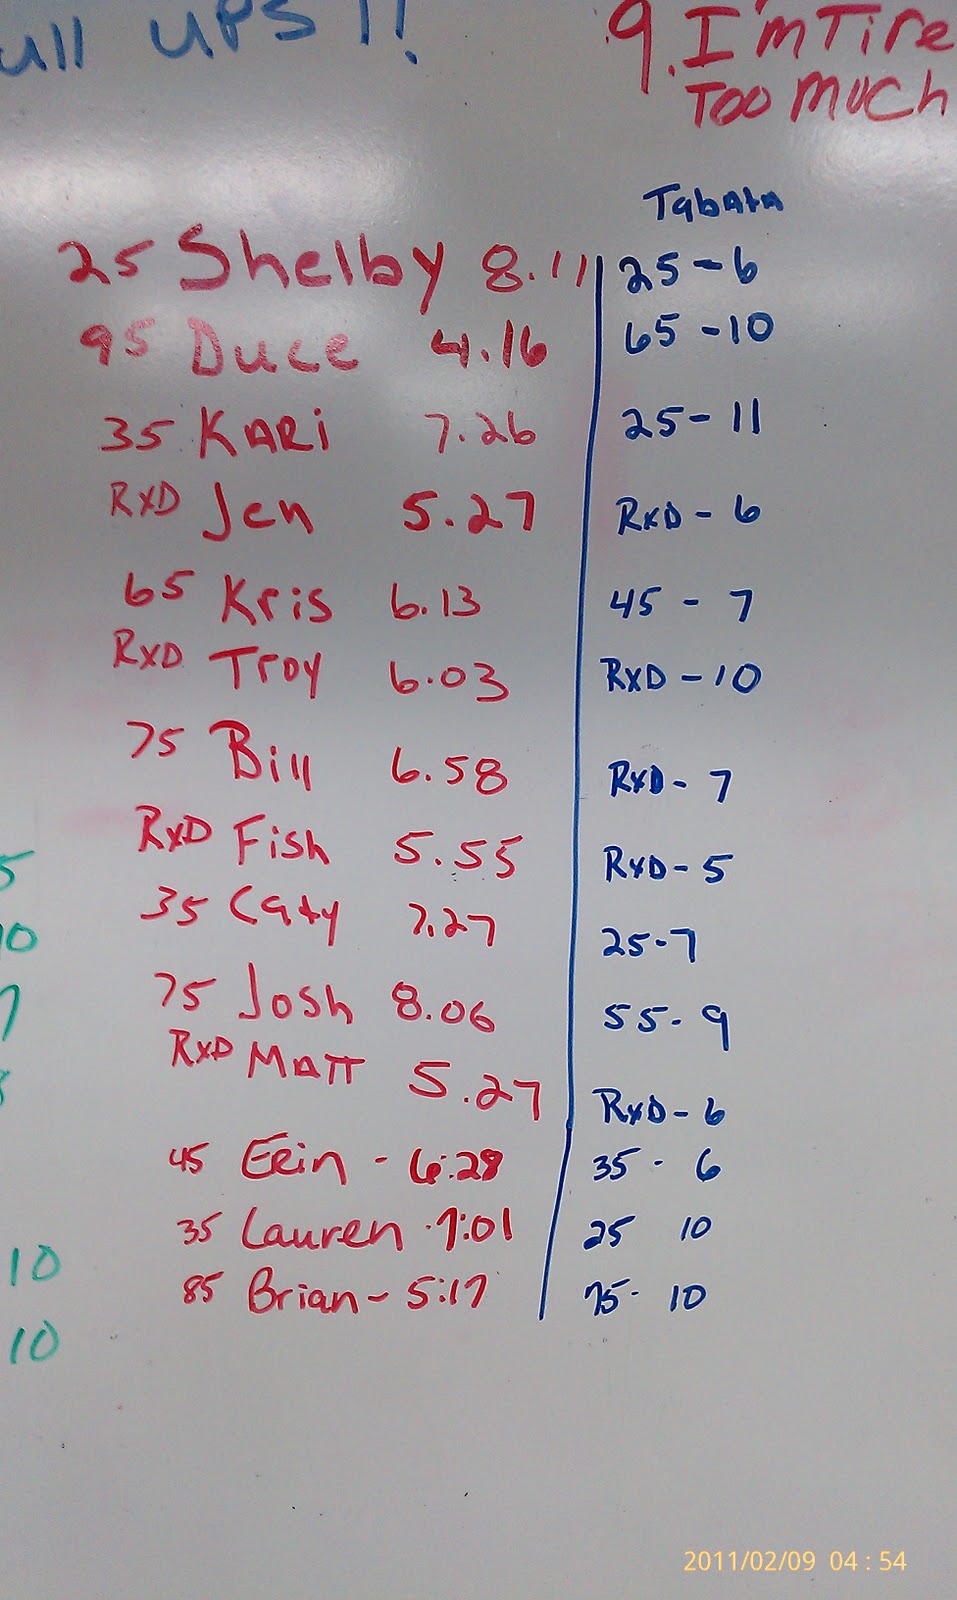 ull UPS!!
9. I'm Tire
Too Much
Tabata
25 Shelby 8.11 25-6
95 Duce 4.16 65-10
35 KARi 7.26 25-11
RXD Jen 5.27 RXD-6
65 Kris 6.13 45-7
RXD Troy 6.03 RXD-10
75 Bill 6.58 RXD-7
RXD Fish 5.55 RXD-5
35 Caty 7.27 25-7
75 Josh 8.06 55-9
RXD MATT 5.27 RXD-6
45 Erin - 6:28 35-6
35 Lauren - 7:01 25 10
85 Brian - 5:17 75-10
10
10
2011/02/09 04:54